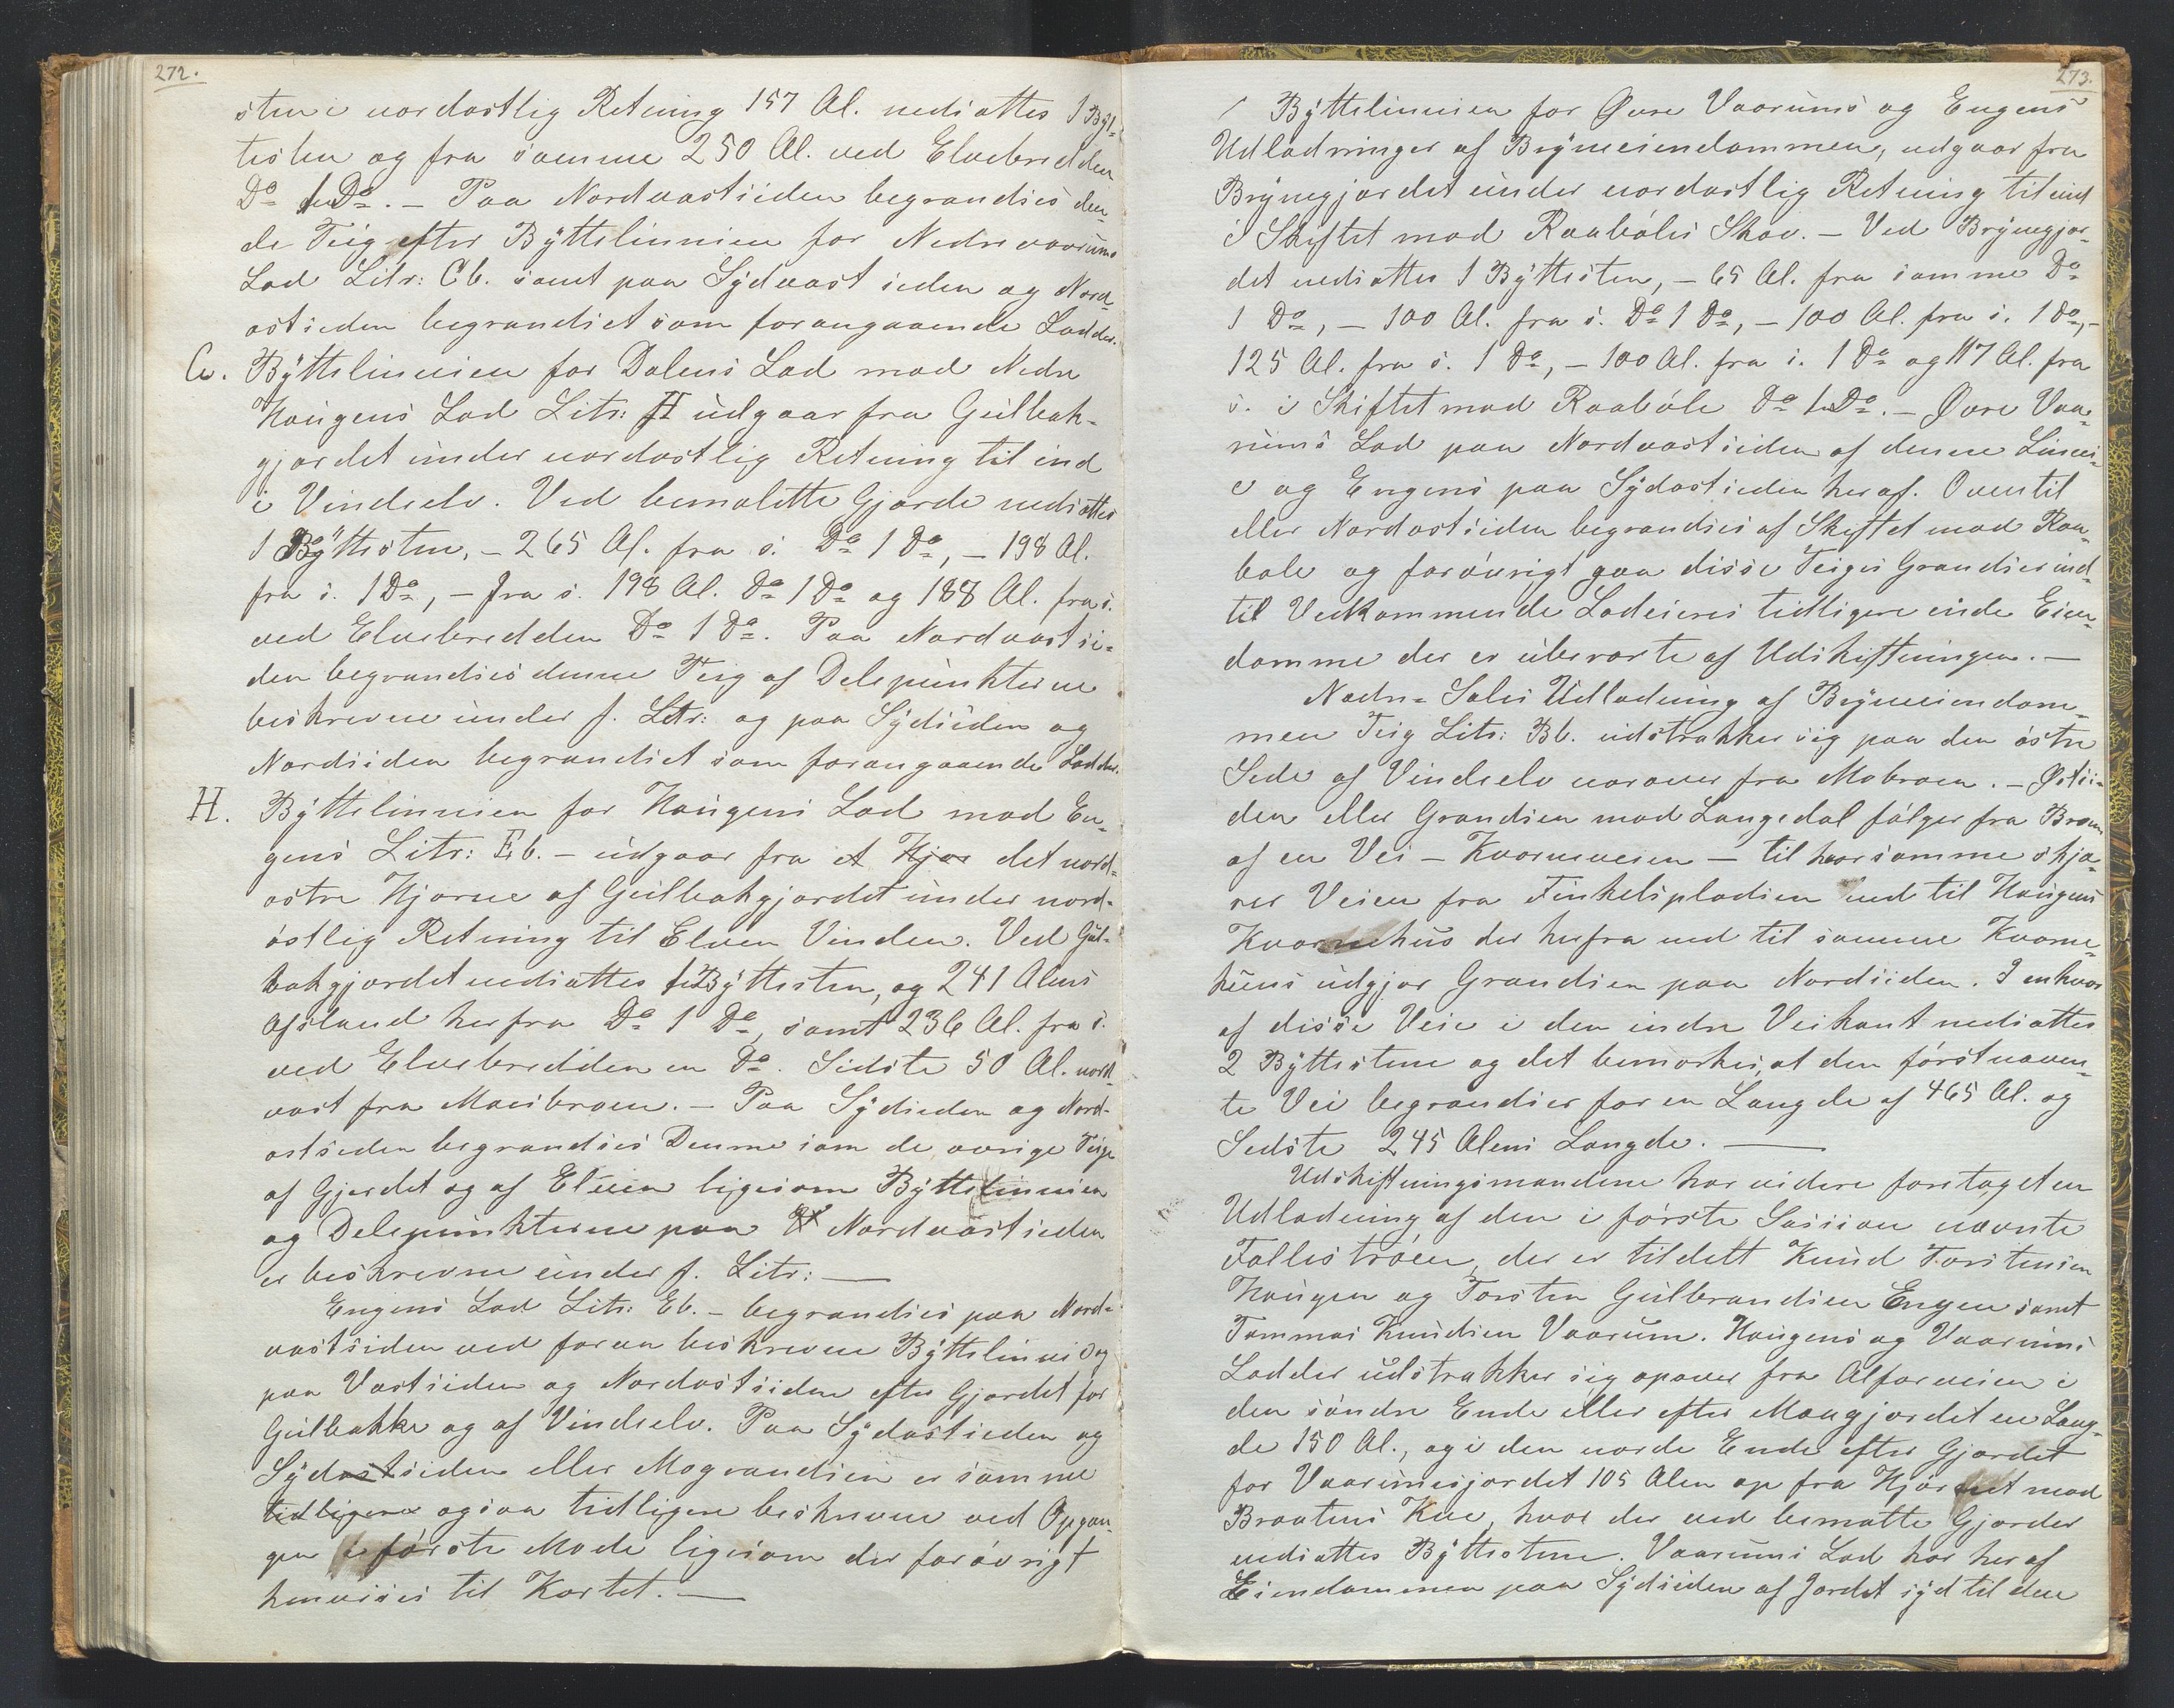 272.
sten i nordostlig Retning 157 Al. nedsattes 1 Byt-
testen og fra samme 250 Al. ved Elvebredden
Do 1 Do. – Paa Nordvestsiden begrændses den-
de Teig efter Byttelinnien for Nedre vaarums
Lod Litr: Cb. samt paa Sydvest siden og Nord
ostsieden begrændset som forangaaende Lodder.
G. Byttelinnien for Dalens Lod mod Nedre
Haugens Lod Litr: H udgaar fra Gulbak-
gjærdet under nordostlig Retning til ind
i Vindself. Ved bemeldte Gjærde nedsattes
1 Byttesten, – 265 Al. fra s. Do 1 Do, – 198 Al.
fra s. 1 Do, – fra s. 198 Al. Do 1 Do og 188 Al. fra s.
ved Elvebredden Do 1 Do. Paa Nordvestsi-
den begrændses denne Teig af Delepunkterne
beskrevne under f. Litr: og paa Sydsiden og
Nordsiden begrændset som forangaaende Lodder.
H. Byttelinnien for Haugens Lod mod En-
gens Litr: Eb. – udgaar fra et Hjør det nord-
østre Hjørne af Gulbakgjærdet under nord-
østlig Retning til Elven Vinden. Ved Gul-
bakgjærdet nedsattes 1 Byttesten, og 241 Alens
Afstand herfra Do 1 Do, samt 236 Al. fra s.
ved Elvebredden en Do. Sidste 50 Al. nord-
vest fra Moesbroen. – Paa Sydsieden og Nord-
ostsieden begrændses Denne som de øvrige Teige
af Gjærdet og af Elven ligesom Byttelinnien
og Delepunkterne paa Nordvestsieden
er beskrevne under f. Litr: —
Engens Lod Litr: Eb. – begrændses paa Nord-
vestsiden ved foran beskrevne Byttelinni og
paa Vestsiden og Nordostsiden efter Gjærdet for
Gulbakke og af Vindself. Paa Sydostsieden og
Sydostsiden eller Mogrændsen er samme
tidligere ogsaa tidligere beskreven ved Opgan-
gen i første Møde ligesom der forøvrigt
henvises til Kartet. —
273.
Byttelinnien for Øvre Vaarums og Engens
Udlodninger af Bryneiendommen, udgaar fra
Brynegjærdet under nordostlig Retning til ind
i Skiftet mod Raaböles Skov. – Ved Brynegjær-
det nedsattes 1 Byttesten, – 65 Al. fra samme Do
1 Do, – 100 Al. fra s. Do 1 Do, – 100 Al. fra s. 1 Do, –
125 Al. fra s. 1 Do, – 100 Al. fra s. 1 Do og 117 Al. fra
s. i Skiftet mod Raaböle Do 1 Do. – Øvre Vaa-
rums Lod paa Nordvestsiden af denne Linni-
e og Engens paa Sydostsieden heraf. Oventil
eller Nordostsiden begrændses af Skiftet mod Raa-
bøle og forøvrigt gaa disse Teiges Grændser ind-
til Vedkommende Lodeieres tidligere eiede Eien-
domme der er uberørte af Udskiftningen. —
Nedre-Soles Udlodning af Bryneiendom-
men Teig Litr: Bb. udstrækker sig paa den östre
Side af Vindself norover fra Mobroen. – Østsi-
den eller Grændsen mod Langedal følger fra Broen
af en Vei – Kværneveien – til hvor samme skjæ-
rer Veien fra Finkelspladsen ned til Haugens
Kværnehus der herfra ned til samme Kværne-
huus udgjør Grændsen paa Nordsiden. I enhver
af disse Veie i den indre Veikant nedsattes
2 Byttestene og det bemærkes, at den förstnævn-
te Vei begrændses for en Længde af 465 Al. og
Sidste 245 Alens Længde. —
Udskiftningsmændene har videre foretaget en
Udlodning af den i første Session nævnte
Follestrøen, der er tildelt Knud Torstensen
Haugen og Torsten Gulbrandsen Engen samt
Tommas Knudsen Vaarum. Haugens og Vaarums
Lodder udstrækker sig opover fra Alfarveien i
den søndre Ende eller efter Mougjærdet en Læng-
de 150 Al., og i den norde Ende efter Gjærdet
for Vaarumsjordet 105 Alen op fra Hjørnet mod
Braatens Kve, hvor der ved bemældte Gjærder
nedsattes Byttestene. Vaarums Lod har heraf
Eiendommen paa Sydsiden af Jordet syd til den